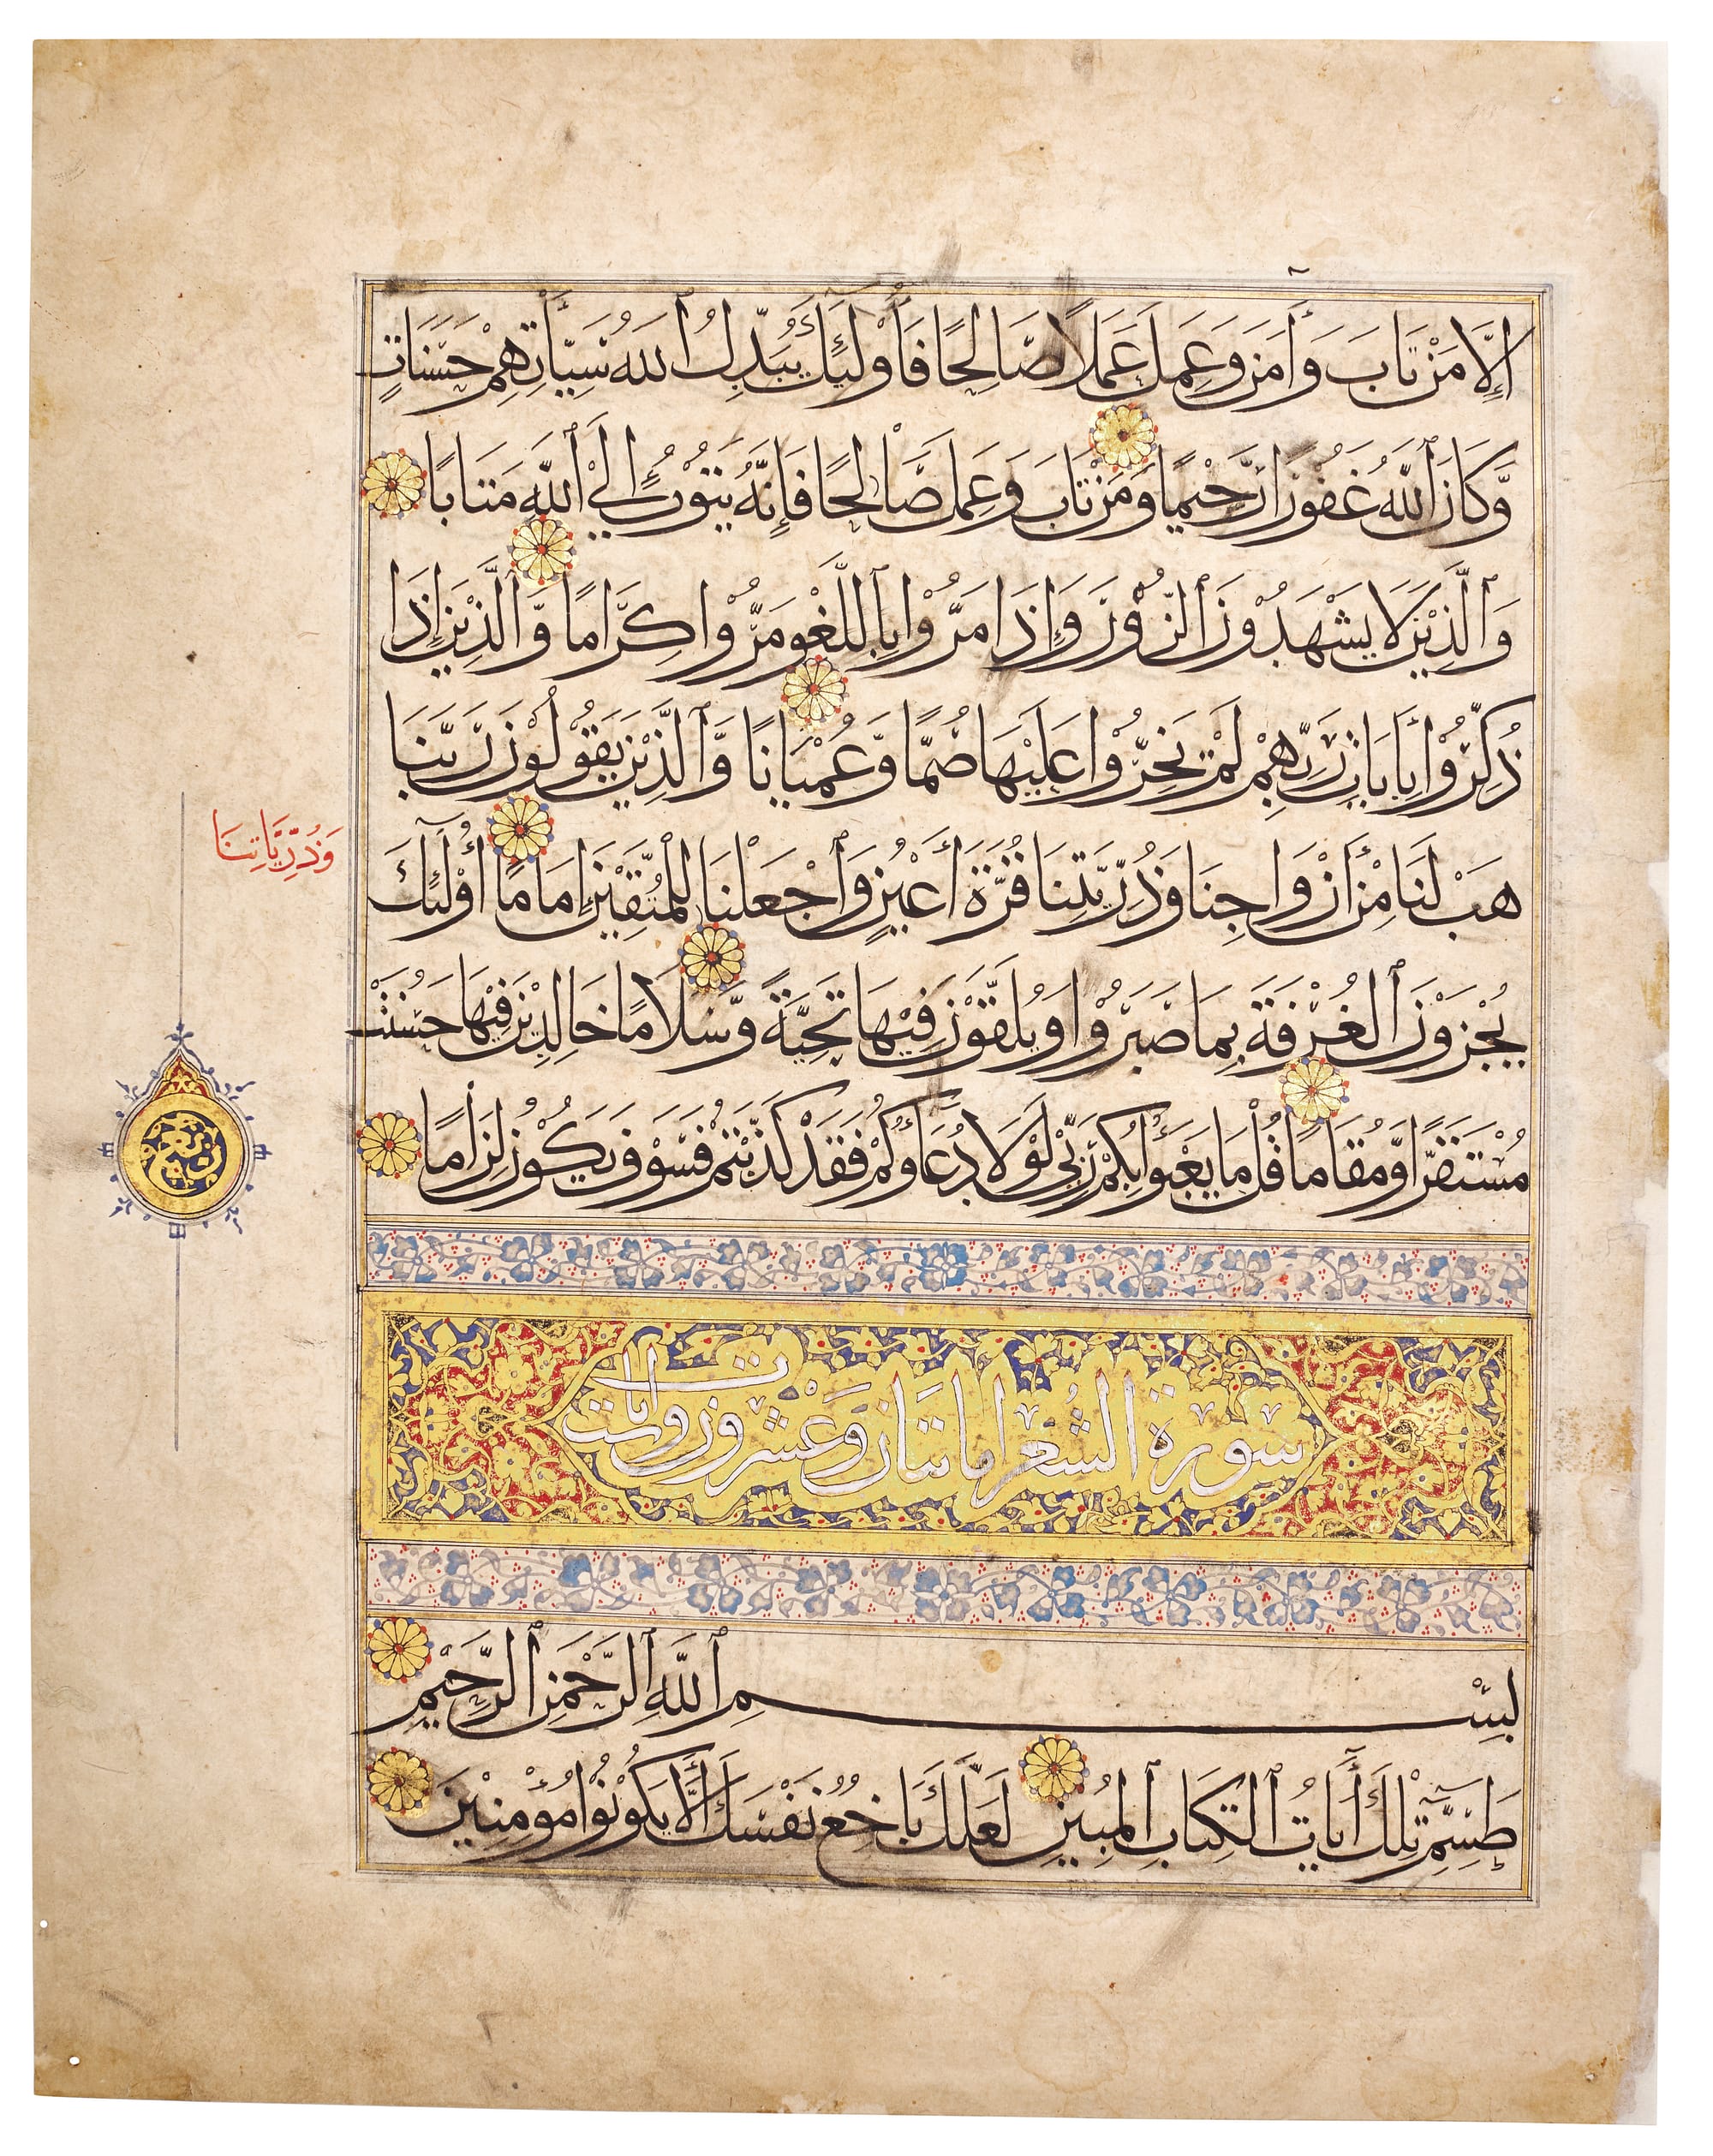 إِلَّا مَنْ تَابَ وَأَمَنَ وَعَمِلَ عَمَلًا صَالِحًا فَأُولَئِكَ يُبَدِّلُ ٱللَّهُ سَيِّأَتِهِمْ حَسَنَاتٍ
وَّكَانَ ٱللَّهُ غَفُوْرًا رَّحِيْمًا وَمَنْ تَابَ وَعَمِلَ صَالِحًا فَإِنَّهُ يَتُوْبُ إِلَى ٱللَّهِ مَتَابًا
وَٱلَّذِيْنَ لَا يَشْهَدُوْنَ ٱلزُّوْرَ وَإِذَا مَرُّوْا بِٱللَّغْوِ مَرُّوْا كِرَامًا وَّٱلَّذِيْنَ إِذَا
ذُكِّرُوْا بِأَيَاتِ رَبِّهِمْ لَمْ يَخِرُّوْا عَلَيْهَا صُمًّا وَّعُمْيَانًا وَّٱلَّذِيْنَ يَقُوْلُوْنَ رَبَّنَا
هَبْ لَنَا مِنْ أَزْوَاجِنَا وَذُرِّيَّتِنَا قُرَّةَ أَعْيُنٍ وَٱجْعَلْنَا لِلْمُتَّقِيْنَ إِمَامًا أُوْلَئِكَ
وَذُرِّيَّاتِنَا
يُجْزَوْنَ ٱلْغُرْفَةَ بِمَا صَبَرُوْا وَيُلَقَّوْنَ فِيْهَا تَحِيَّةً وَّسَلَامًا خَالِدِيْنَ فِيْهَا حَسُنَتْ
مُسْتَقَرًّا وَّمُقَامًا قُلْ مَا يَعْبَؤُا بِكُمْ رَبِّيْ لَوْلَا دُعَاؤُكُمْ فَقَدْ كَذَّبْتُمْ فَسَوْفَ يَكُوْنُ لِزَامًا
سورة الشعرا مائتان وعشرون وست ايات
بِسْمِ ٱللَّهِ ٱلرَّحْمَنِ ٱلرَّحِيْمِ
طَسِمّ تِلْكَ أَيَاتُ ٱلْكِتَابِ ٱلْمُبِيْنِ لَعَلَّكَ بَاخِعٌ نَفْسَكَ أَلَّا يَكُوْنُوْا مُؤْمِنِيْنَ